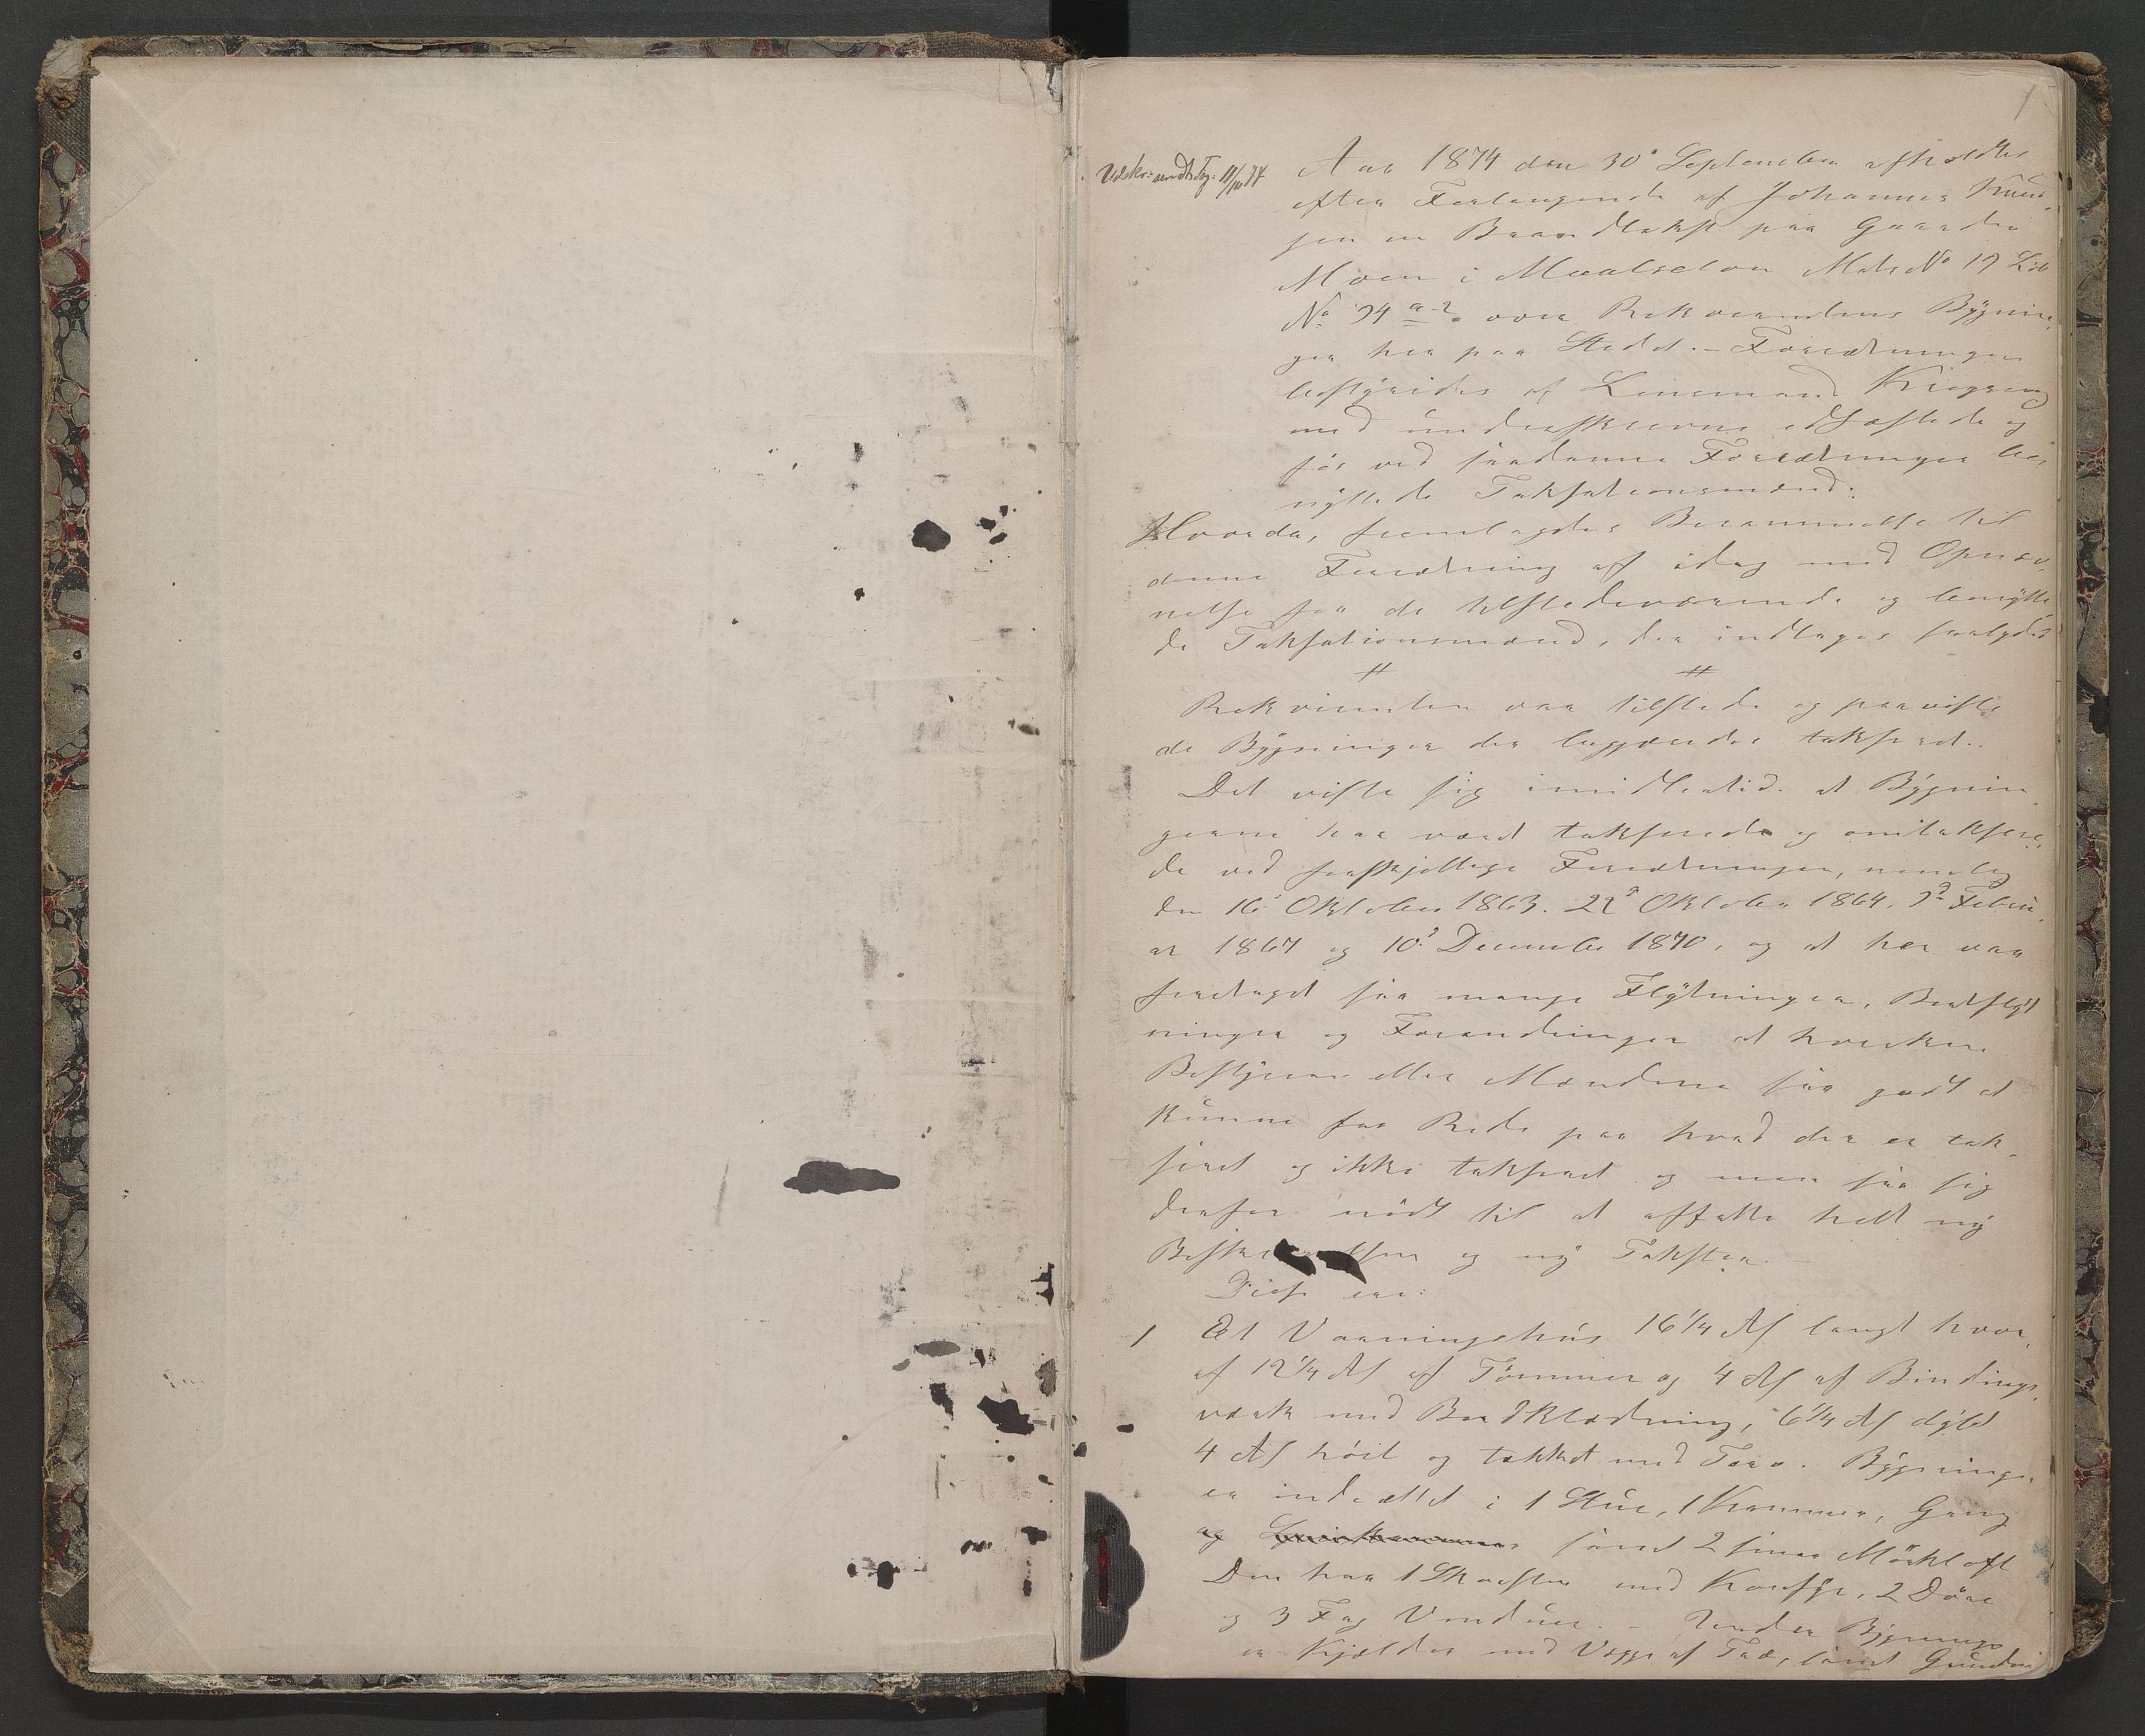 1
Udskr: sendt Fog. 11/10 74
Aar 1874 den 30' September afholdtes
efter Forlangende af Johannes Knud-
sen en Brandtakst paa Gaarden
Moen i Maalselven Matr No 17 Løb
No 94 a-2 over Rekvirentens Bygnin-
ger her paa Stedet. - Forretningen
bestyredes af Lensmand
med underskrevne edfæstede og
for ved saadanne Forretninger be-
nyttede Taksationsmænd:
Hvorda, fremlagdes Berammelse til
denne Forretning af idag med Opnæv-
nelse for de tilstedeværende og benytte-
de Taksationsmænd, der indtages saalydes
# #
Rekvirenten var tilstede og paaviste
de Bygninger der begjæredes takseret.
Det viste sig imidlertid at Bygnin-
gerne har været takserede og omtaksere-
de ved forskjellige Forretninger, nemlig
den 16' Oktober 1863. 22' Oktober 1864. 9' Febru-
ar 1867 og 10' December 1870, og at her var
foretaget saa mange Flytninger, Bortflyt
ninger og Forandringer at hverken
Bestyrer eller Mændene saa godt at
kunne faa Rede paa hvad der er tak-
seret og ikke takseret og man saa sig
derfor nødt til at affatte helt ny
Beskrivelser og ny Takster
Disse ere:
1 Et Vaaningshus 16 1/4 Al langt hvor-
af 12 1/4 Al af Tømmer og 4 Al af Bindings-
værk med Bordklædning, 6 1/4 Al dybt
4 Al høit og tækket med Torv. Bygningen
er indrettet i 1 Stue, 1 Kammer, Gang
og samt 2 smaa Mørkloft
Den har 1 Skorsten med Komfyr, 2 Døre
og 3 Fag Vinduer. - Under Bygningen
er Kjælder med Vægge af Træ, samt Grundmu